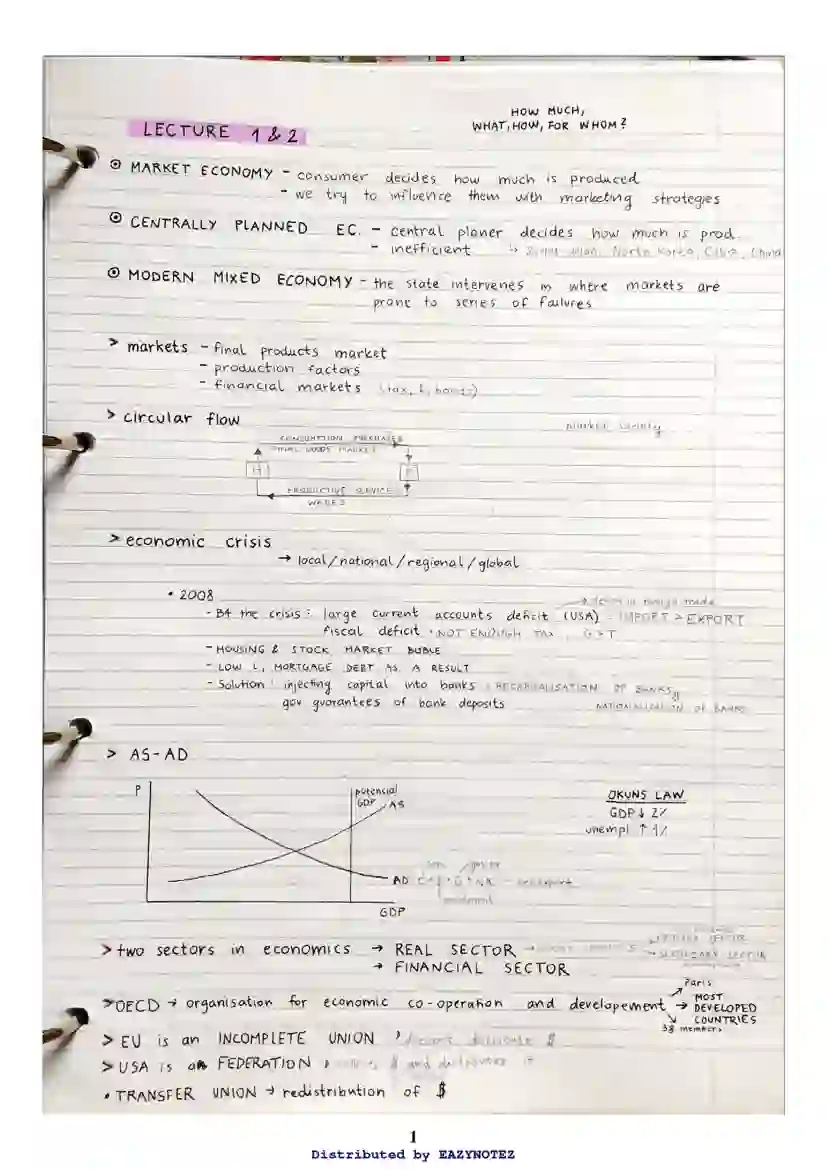 HOW MUCH,
WHAT, HOW, FOR WHOM?
LECTURE 1 & 2
MARKET ECONOMY - consumer decides how much is produced
- we try to influence them with marketing strategies
CENTRALLY PLANNED EC. - central planer decides how much is prod.
- inefficient → North Korea, Cuba, China
MODERN MIXED ECONOMY - the state intervenes in where markets are
prone to series of failures
> markets - final products market
- production factors
- financial markets
> circular flow
market society
CONSUMPTION PURCHASES
FINAL GOODS MARKET
H
F
PRODUCTIVE SERVICE
WAGES
> economic crisis
→ local/national/regional/global
• 2008
- B4 the crisis: large current accounts deficit (USA) - IMPORT > EXPORT
fiscal deficit • NOT ENOUGH TAX, G>T
- HOUSING & STOCK MARKET BUBLE
- LOW i, MORTGAGE DEBT AS A RESULT
- Solution: injecting capital into banks: RECAPITALISATION OF BANKS,
gov guarantees of bank deposits
NATIONALIZATION OF BANKS
> AS-AD
P
potencial
GDP
AS
AD
GDP
OKUNS LAW
GDP ↓ 2%
unempl ↑ 1%
> two sectors in economics → REAL SECTOR
→ SECONDARY SECTOR
→ FINANCIAL SECTOR
> OECD → organisation for economic co-operation and developement → MOST
DEVELOPED
COUNTRIES
Paris
38 members
> EU is an INCOMPLETE UNION
> USA is an FEDERATION
• TRANSFER UNION → redistribution of $
1
Distributed by EAZYNOTEZ